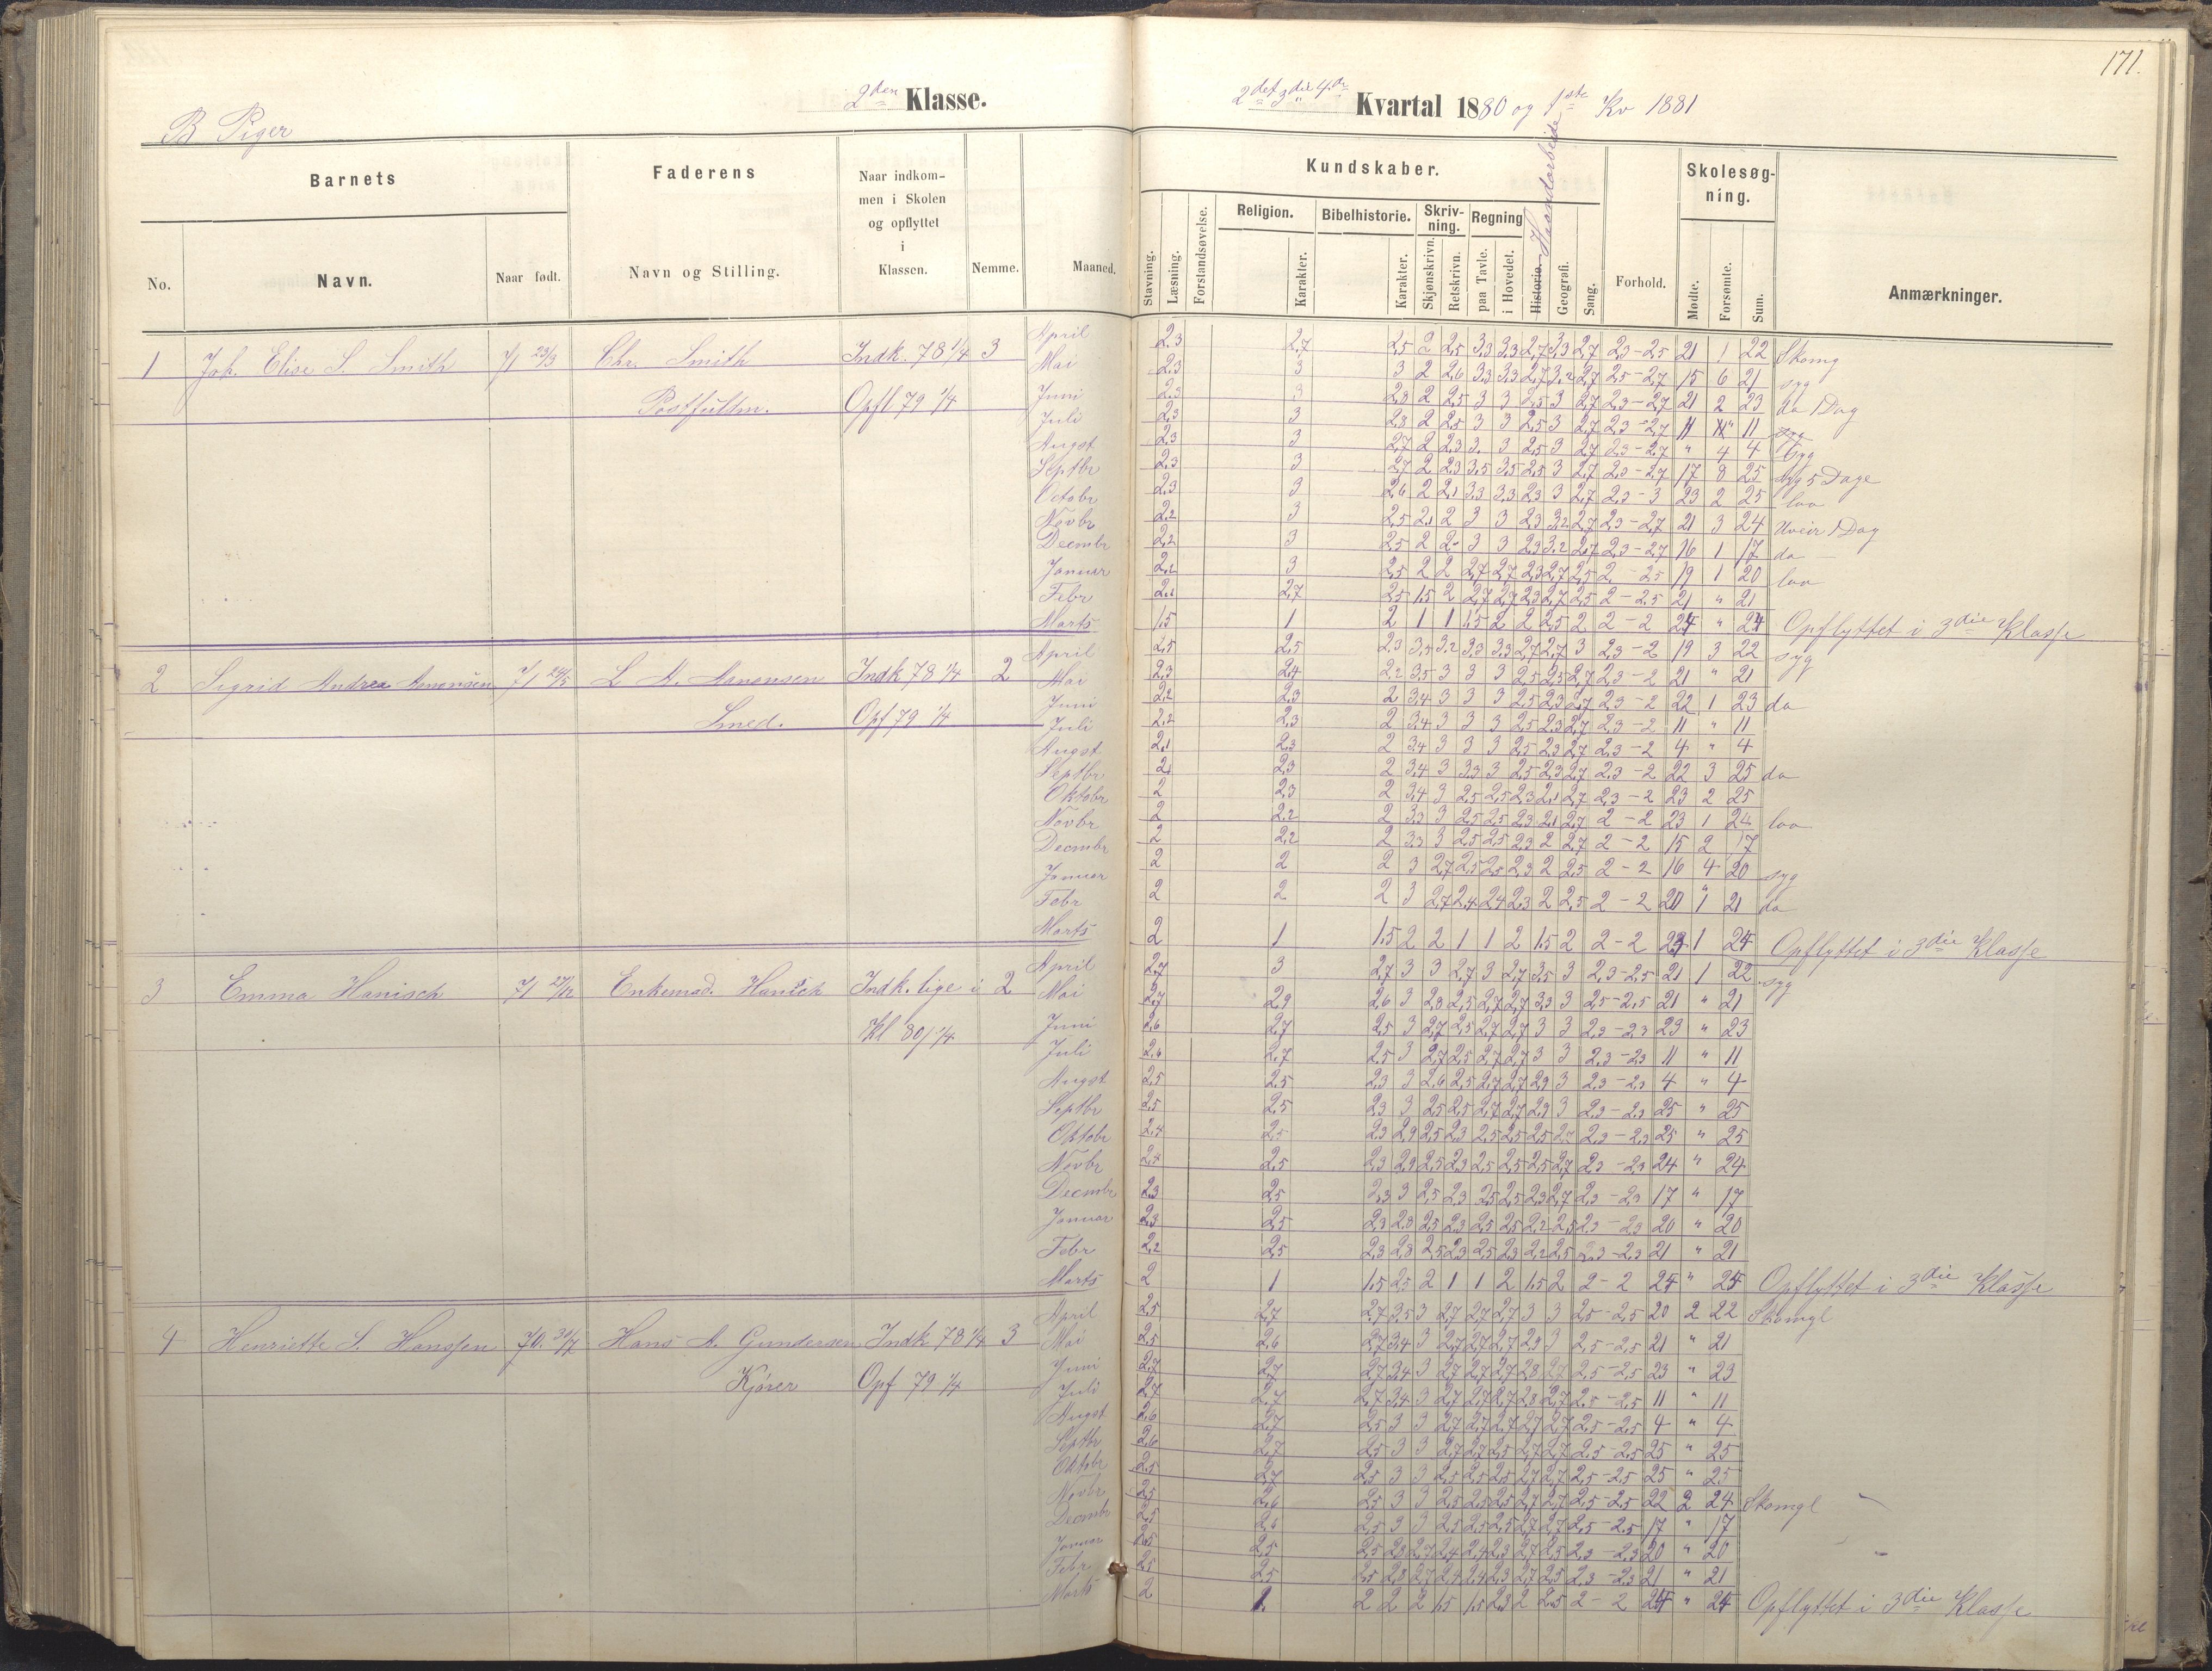 171.
2den Klasse.
2det 3die 4de Kvartal 1880 og 1ste Kv 1881
B Piger
Barnets
Faderens
Naar indkom-
men i Skolen
og opflyttet
i
Klassen.
Nemme.
Maaned.
No.
Navn.
Naar født.
Navn og Stilling.
Kundskaber.
Stavning.
Læsning.
Forstandsøvelse.
Religion.
Karakter.
Bibelhistorie.
Karakter.
Skriv-
ning.
Skjønskrivn.
Retskrivn.
Regning
paa Tavle.
i Hovedet.
Historie.
Haandarbeide
Geografi.
Sang.
Forhold.
Skolesøg-
ning.
Mødte.
Forsømte.
Sum.
Anmærkninger.
1 Joh. Elise S. Smith 71 23/3 Chr. Smith Indk. 78 1/4 3
Opfl 79 1/4
April 2,3 2,7 2,5 2 2,5 3,3 3,3 2,7 3,3 2,7 2,3-2,5 21 1 22 Skomg
Mai 2,3 3 3 2 2,6 3,3 3,3 2,7 3,2 2,7 2,5-2,7 15 6 21 syg
Juni 2,3 3 2,8 2 2,5 3 3 2,5 3 2,7 2,3-2,7 21 2 23 do 1 Dag
Juli 2,3 3 2,8 2 2,5 3 3 2,5 3 2,7 2,3-2,7 11 " 11
Augst 2,3 3 2,7 2 2,3 3 3 2,5 3 2,7 2,3-2,7 " 4 4 Syg
Septbr 2,3 3 2,7 2 2,3 3,5 3,5 2,5 3 2,7 2,3-2,7 17 8 25 syg 5 Dage
Octobr 2,3 3 2,6 2 2,1 3,3 3,3 2,3 3 2,7 2,3-3 23 2 25 lov
Novbr 2,2 3 2,5 2,1 2 3 3 2,3 3,2 2,7 2,3-2,7 21 3 24 Uveir 1 Dag
Decmbr 2,2 3 2,5 2 2 3 3 2,3 3,2 2,7 2,3-2,7 16 1 17 do
Januar 2,2 3 2,5 2 2 2,7 2,7 2,3 2,7 2,5 2-2,5 19 1 20 lov
Febr 2,2 2,7 2,5 1,5 2 2,7 2,7 2,3 2,7 2,5 2-2,5 21 " 21
Marts 1,5 1 2 1 1 1,5 2 2 2,5 2 2-2 24 " 24 Opflyttet i 3die Klasse
2 Sigrid Andrea Amonsen 71 24/5 L A. Amonsen Indk 78 1/4 2
Smed. Opf 79 1/4
April 2,5 2,5 2,3 3,5 3,2 3,3 3,3 2,7 2,7 3 2,3-2 19 3 22 syg
Mai 2,3 2,4 2,2 3,5 3 3 3 2,5 2,5 2,7 2,3-2 21 " 21
Juni 2,2 2,3 2 3,4 3 3 3 2,5 2,3 2,7 2,3-2 22 1 23 do
Juli 2,2 2,3 2 3,4 3 3 3 2,5 2,3 2,7 2,3-2 11 " 11
Augst 2,1 2,3 2 3,4 3 3 3 2,5 2,3 2,7 2,3-2 4 " 4
Septbr 2 2,3 2 3,4 3 3,3 3 2,5 2,3 2,7 2,3-2 22 3 25 do
Oktobr 2 2,3 2 3,4 3 2,5 2,5 2,3 2,1 2,7 2,3-2 23 2 25
Novbr 2 2,2 2 3,3 3 2,5 2,5 2,3 2,1 2,7 2-2 23 1 24 lov
Decmbr 2 2,2 2 3,3 3 2,5 2,5 2,3 2 2,7 2-2 15 2 17
Januar 2 2 2 3 2,7 2,5 2,5 2,3 2 2,5 2-2 16 4 20 syg
Febr 2 2 2 3 2,7 2,4 2,4 2,3 2 2,5 2-2 20 1 21 do
Marts 2 1 1,5 2 2 1 1 2 1,5 2 2-2 23 1 24 Opflyttet i 3die Klasse
3 Emma Hanisch 71 27/12 Enkemad. Hanisch Indk. lige i 2
Kl 80/ 1/4
April 2,7 3 2,7 3 3 2,7 3 2,7 3,5 3 2,3-2,5 21 1 22 syg
Mai 2,7 2,9 2,6 3 2,8 2,5 2,7 2,7 3,3 3 2,5-2,5 21 " 21
Juni 2,6 2,7 2,5 3 2,7 2,5 2,7 2,7 3 3 2,3-2,3 23 " 23
Juli 2,6 2,7 2,5 3 2,7 2,5 2,7 2,7 3 3 2,3-2,3 11 " 11
Augst 2,5 2,5 2,3 3 2,6 2,5 2,7 2,7 2,9 3 2,3-2,3 4 " 4
Septbr 2,5 2,5 2,3 3 2,5 2,5 2,7 2,7 2,9 3 2,3-2,3 25 " 25
Oktobr 2,4 2,5 2,3 2,9 2,5 2,3 2,5 2,5 2,5 2,7 2,3-2,3 25 " 25
Novbr 2,4 2,5 2,3 2,9 2,5 2,3 2,5 2,5 2,5 2,7 2,3-2,3 24 " 24
Decmbr 2,3 2,5 2,3 3 2,5 2,3 2,5 2,5 2,3 2,7 2,3-2,3 17 " 17
Januar 2,3 2,5 2,3 2,8 2,5 2,3 2,5 2,5 2,2 2,5 2,3-2,3 20 " 20
Febr 2,2 2,5 2,3 2,8 2,5 2,3 2,5 2,3 2,2 2,5 2,3-2,3 21 " 21
Marts 2 1 1,5 2,5 2 1 1 2 1,5 2 2-2 24 " 24 Opflyttet i 3die Klasse
4 Henriette S. Hanssen 70. 31/7 Hans A. Gundersen Indk 78 1/4 3
Kjører Opf 79 1/4
April 2,5 2,7 2,7 3,5 3 2,7 2,7 2,7 3 3 2,5-2,5 20 2 22 Skomgl
Mai 2,5 2,6 2,7 3,4 3 2,7 2,7 2,7 2,9 3 2,5-2,5 21 " 21
Juni 2,7 2,7 2,7 3,4 3 2,7 2,7 2,7 2,8 2,7 2,5-2,5 23 " 23
Juli 2,7 2,7 2,7 3,4 3 2,7 2,7 2,7 2,8 2,7 2,5-2,5 11 " 11
Augst 2,6 2,7 2,5 3 3 2,7 2,7 2,7 2,7 2,7 2,5-2,5 4 " 4
Septbr 2,6 2,7 2,5 3 3 2,7 2,7 2,5 2,7 2,7 2,5-2,5 25 " 25
Oktobr 2,5 2,7 2,5 3 3 2,5 2,5 2,5 2,7 2,7 2,5-2,5 25 " 25
Novbr 2,5 2,6 2,5 3 3 2,5 2,5 2,5 2,7 2,7 2,5-2,5 22 2 24 Skomgl
Decmbr 2,5 2,6 2,5 3 3 2,5 2,5 2,5 2,7 2,7 2,5-2,5 17 " 17
Januar 2,5 2,5 2,5 2,8 2,7 2,4 2,4 2,3 2,7 2,5 2,3-2,3 20 " 20
Febr 2,5 2,5 2,5 2,8 2,7 2,4 2,4 2,3 2,7 2,5 2,3-2,3 21 " 21
Marts 2 1. 2 2 2 1,5 1,5 2,3 2 2,5 2-2 24 " 24 Opflyttet i 3die Klasse